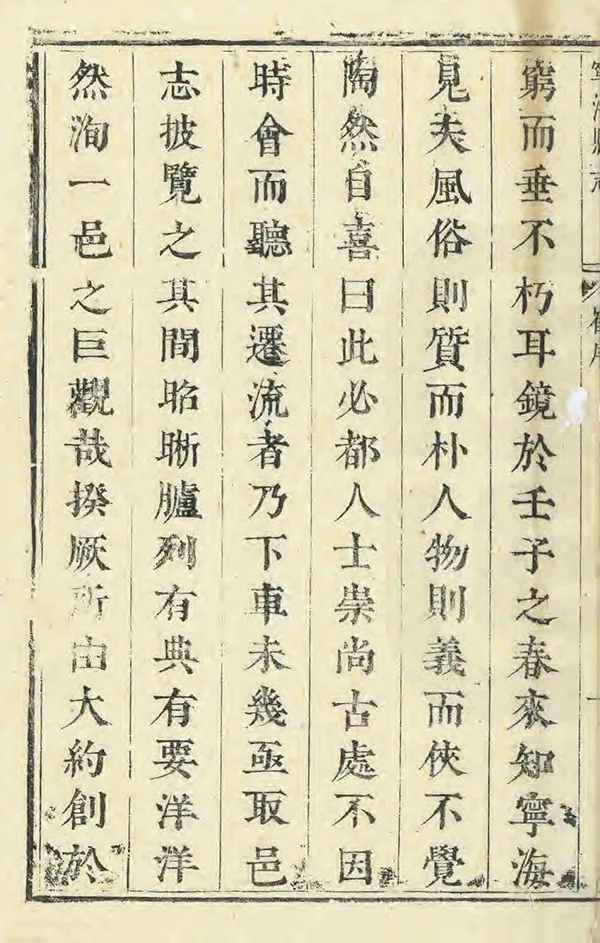 寧海縣志 序
窮而垂不朽耳鏡於壬子之春來知寧海
見夫風俗則質而朴人物則義而俠不覺
陶然自喜曰此必都人士崇尚古處不因
時會而聽其遷流者乃下車未幾亟取邑
志披覽之其間昭晰臚列有典有要洋洋
然洵一邑之巨觀哉揆厥所由大約創於